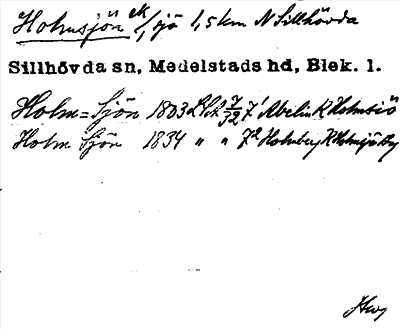 Holmsjön ek/sjö 1,5 km N Sillhövda
Sillhövda sn, Medelstads hd, Blek. l.
Holm=Sjön 1803 7/32 7¹ Abelin K Holmsiö
Holm Sjön 1834 " " 7² Holmberg K Holmsjö By